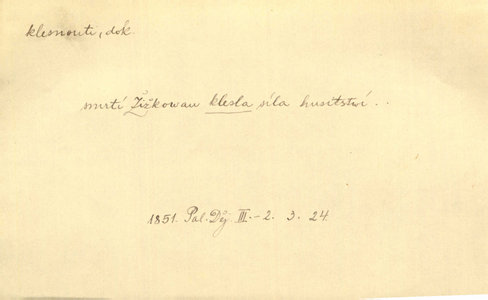 klesnouti, dok.
smrtí Žižkowau klesla síla husitstwí..
1851. Pal. Děj. III.-2. 3. 24.